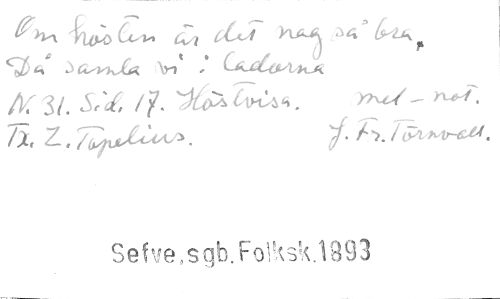 Om hösten är det nag så bra,
Då samla vi i ladorna
N. 31. Sid. 17. Höstvisa. mel-not.
Tx. Z. Topelius. J. Fr. Törnvall.
Sefve,sgb.Folksk.1893